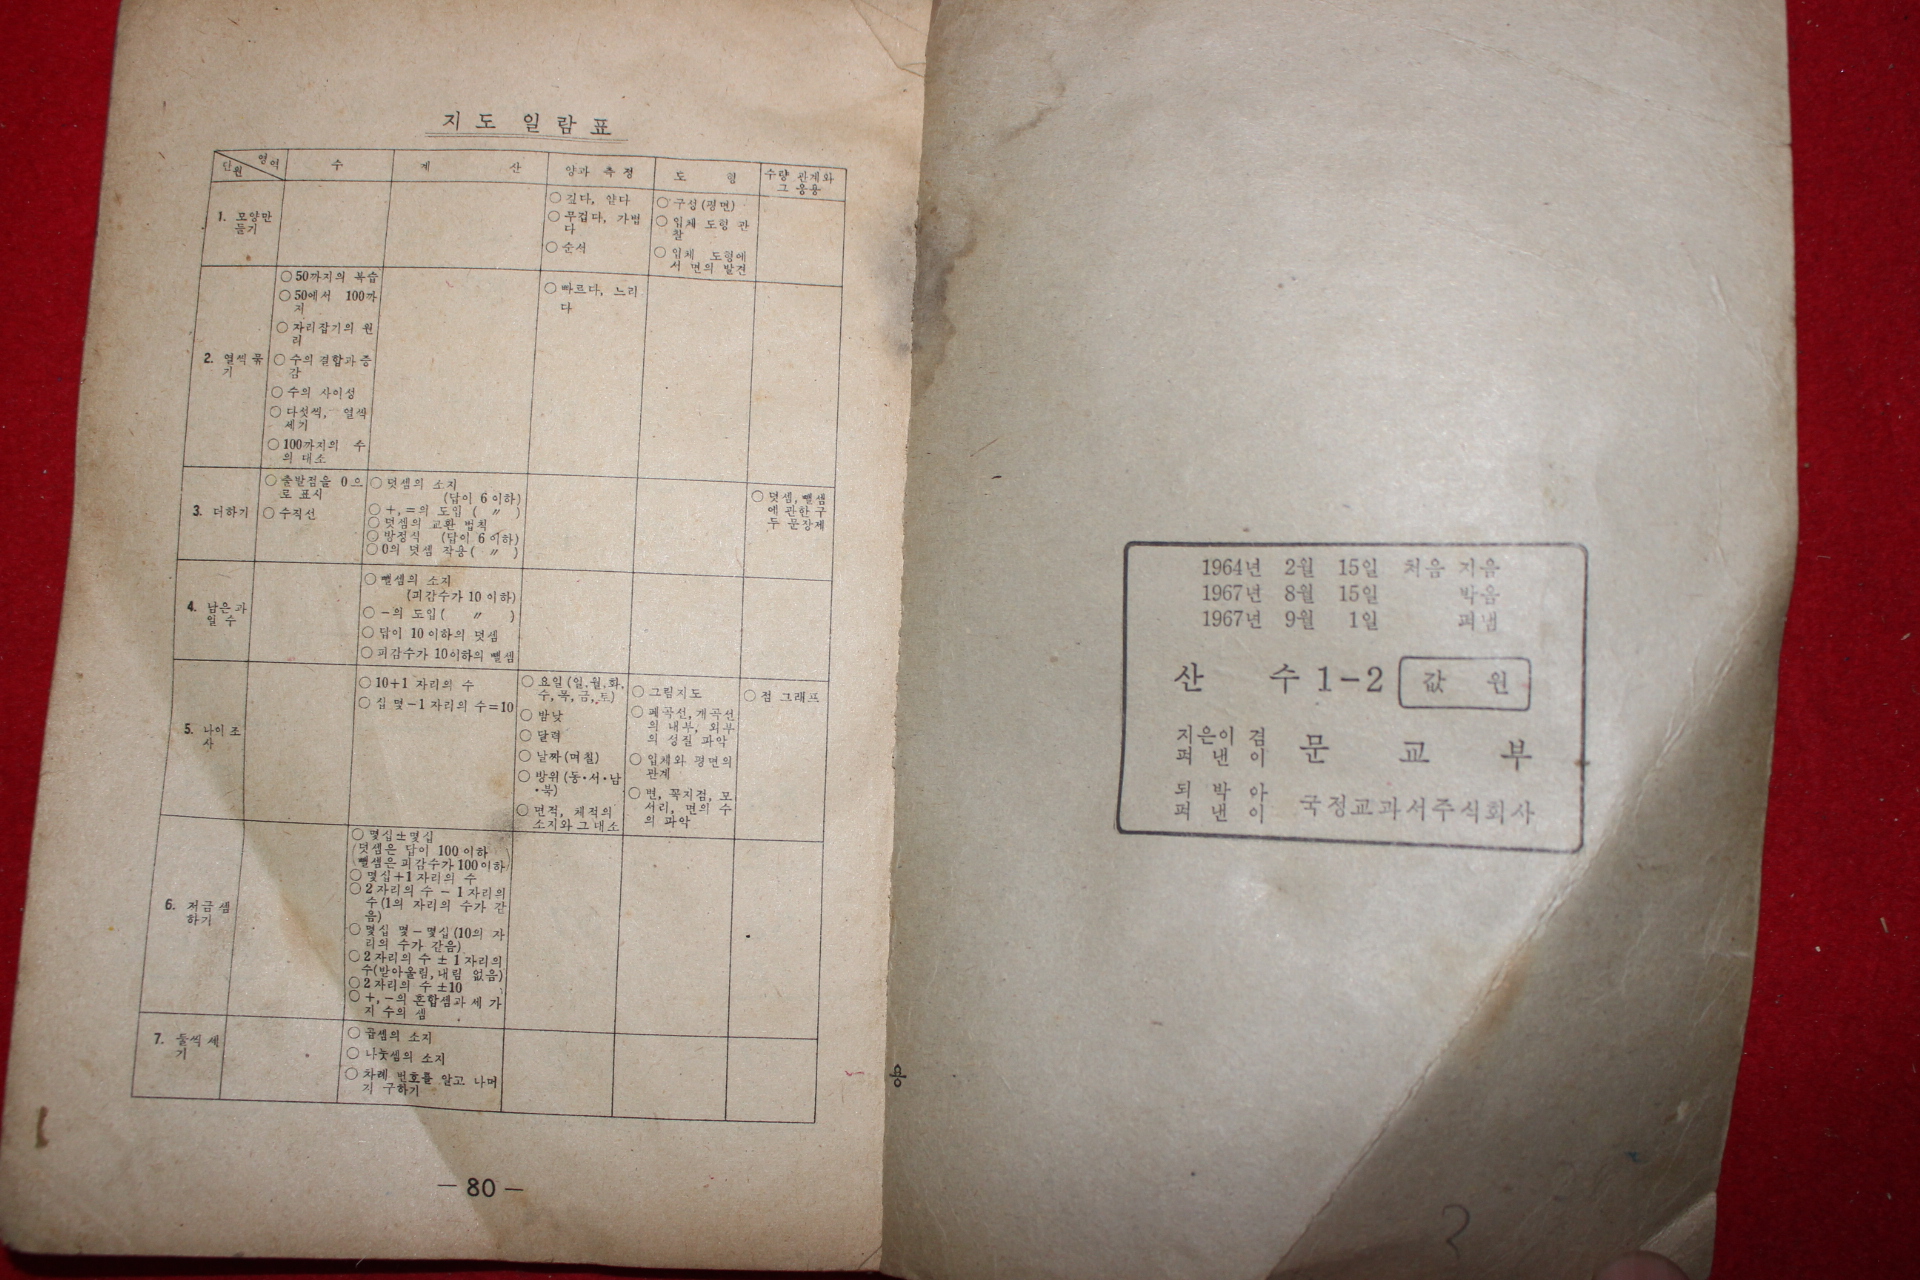 지도 일람표
단원 영역 수 계 산 양과 측정 도 형 수량 관계와
그 응용
1. 모양만
들기
○ 깊다, 얕다
○ 무겁다, 가볍
다
○ 순서
○ 구성(평면)
○ 입체 도형 관
찰
○ 입체 도형에
서 면의 발견
2. 열씩 묶
기
○ 50까지의 복습
○ 50에서 100까
지
○ 자리잡기의 원
리
○ 수의 결합과 증
감
○ 수의 사이성
○ 다섯씩, 열씩
세기
○ 100까지의 수
의 대소
○ 빠르다, 느리
다
3. 더하기
○ 출발점을 0으
로 표시
○ 수직선
○ 덧셈의 소지
(답이 6 이하)
○ +, =의 도입 ( 〃 )
○ 덧셈의 교환 법칙
○ 방정식 (답이 6 이하)
○ 0의 덧셈 작용 ( 〃 )
○ 덧셈, 뺄셈
에 관한 구
두 문장제
4. 남은 과
일 수
○ 뺄셈의 소지
(피감수가 10 이하)
○ −의 도입 ( 〃 )
○ 답이 10이하의 덧셈
○ 피감수가 10이하의 뺄셈
5. 나이 조
사
○ 10+1 자리의 수
○ 십 몇−1 자리의 수=10
○ 요일(일,월,화,
수,목,금,토)
○ 밤낮
○ 달력
○ 날짜(며칠)
○ 방위(동·서·남
·북)
○ 면적, 체적의
소지와 그 대소
○ 그림지도
○ 폐곡선, 개곡선
의 내부, 외부
의 성질 파악
○ 입체와 평면의
관계
○ 변, 꼭지점, 모
서리, 면의 수
의 파악
○ 점 그래프
6. 저금 셈
하기
○ 몇십±몇십
(덧셈은 답이 100 이하
뺄셈은 피감수가 100이하)
○ 몇십+1 자리의 수
○ 2 자리의 수 − 1 자리의
수(1의 자리의 수가 같
음)
○ 몇십 몇−몇십(10의 자
리의 수가 같음)
○ 2 자리의 수 ± 1 자리의
수(받아올림, 내림 없음)
○ 2 자리의 수 ±10
○ +, −의 혼합셈과 세 가
지 수의 셈
7. 둘씩 세
기
○ 곱셈의 소지
○ 나눗셈의 소지
○ 차례 번호를 알고 나머
지 구하기
— 80 —
용
1964년 2월 15일 처음 지음
1967년 8월 15일 박음
1967년 9월 1일 펴냄
산 수 1−2 값 원
지은이 겸
펴 낸 이 문 교 부
되 박 아
펴 낸 이 국정교과서주식회사
2